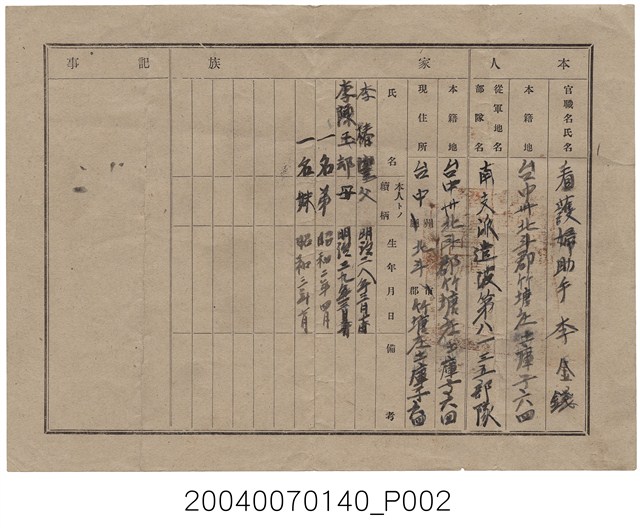 本人
家族
記事
官職名氏名 看護婦助手 李金錢
本籍地 台中州北斗郡竹塘庄土庫子六四
從軍地名 部隊名 南支派遣波第八一三五部隊
本籍地 台中州北斗郡竹塘庄土庫子六四
現住所 台中 北斗郡竹塘庄土庫子六四
氏名 本人トノ續柄 生年月日 備考
李 父 明治二八年三月
李陳玉 母 明治二九年
一名 弟 昭和二年四月
一名 妹 昭和三年
20040070140_P002